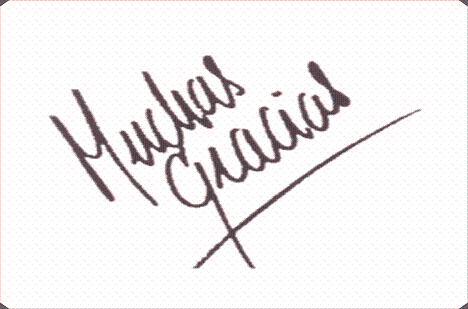 Muchas
gracias